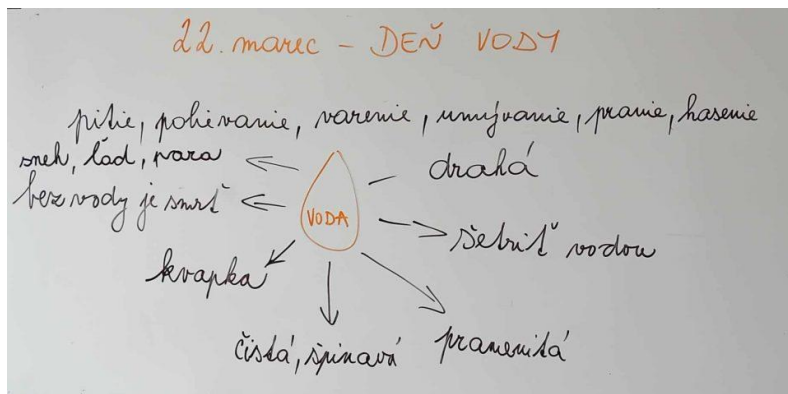 22. marec - DEŇ VODY
pitie, polievanie, varenie, umývanie, pranie, hasenie
sneh, ľad, para
drahá
bez vody je smrť
VODA
šetriť vodou
kvapka
čistá, špinavá
pramenitá